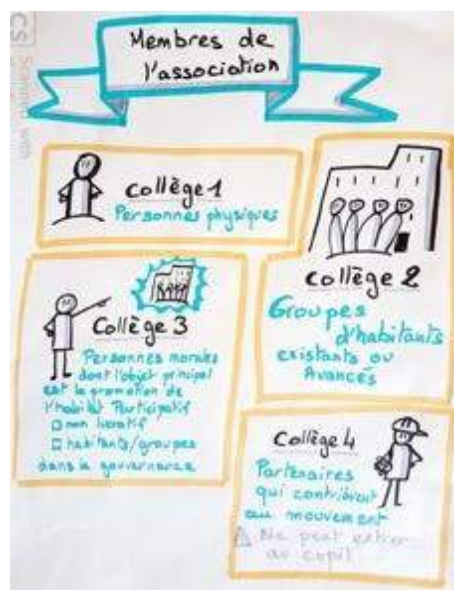 Membres de
l'association
collège 1
Personnes physiques
collège 2
Groupes
d'habitants
existants ou
Avancés
Collège 3
Personnes morales
dont l'objet principal
est la promotion de
l'habitat Participatif
non lucratif
habitants/groupes
dans la gouvernance
Collège 4
Partenaires
qui contribuent
au mouvement
Ne peut entrer
au copil
CS Scanned with